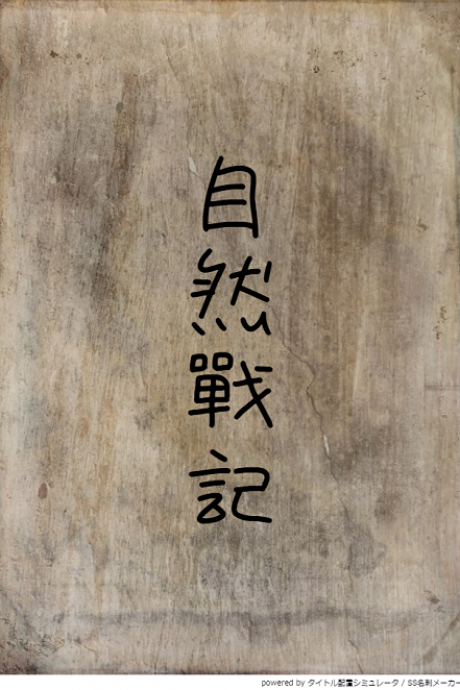 自然戰記
powered by タイトル配置シミュレータ / SS名刺メーカー